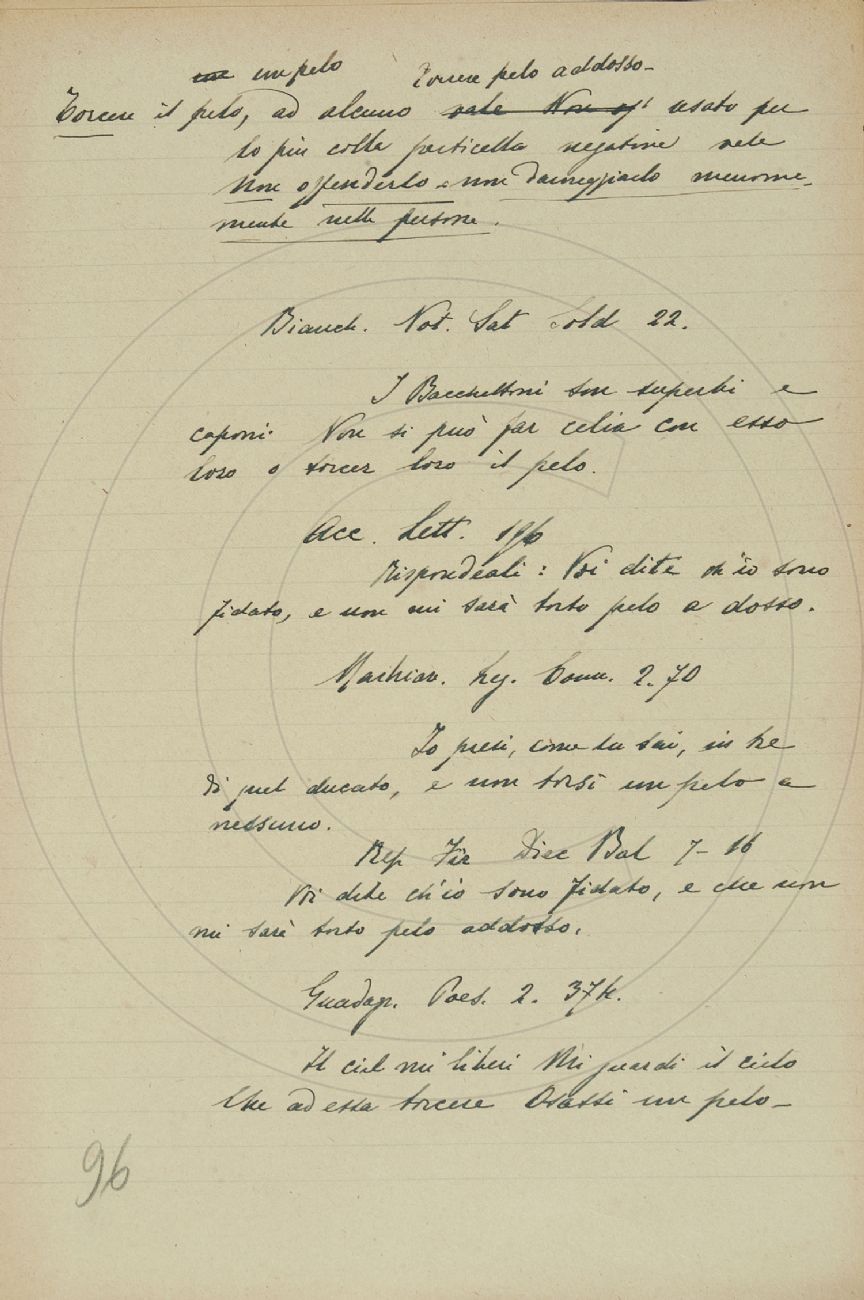 un un pelo Torcere pelo addosso-
Torcere il pelo, ad alcuno vale Non off usato per
lo più colla particella negativa vale
Non offenderlo e non danneggiarlo menoma-
mente nella persona.
Bianch. Not. Sat Sold 22.
I Bacchettoni son superbi e
caponi. Non si può far celia con esso
loro o torcer loro il pelo.
Acc. Lett. 196
Rispondeali: Voi dite ch'io sono
fidato, e non mi sarà torto pelo a dosso.
Machiav. Leg. Comm. 2.70
Io presi, come tu sai, in tre
dì quel ducato, e non torsi un pelo a
nessuno.
Rep Fir Diec Bal 7-16
Voi dite ch'io sono fidato, e che non
mi sarà torto pelo addosso.
Guadagn. Poes. 2. 374.
Il ciel mi liberi Mi guardi il cielo
Che ad essa torcere Osassi un pelo-
96